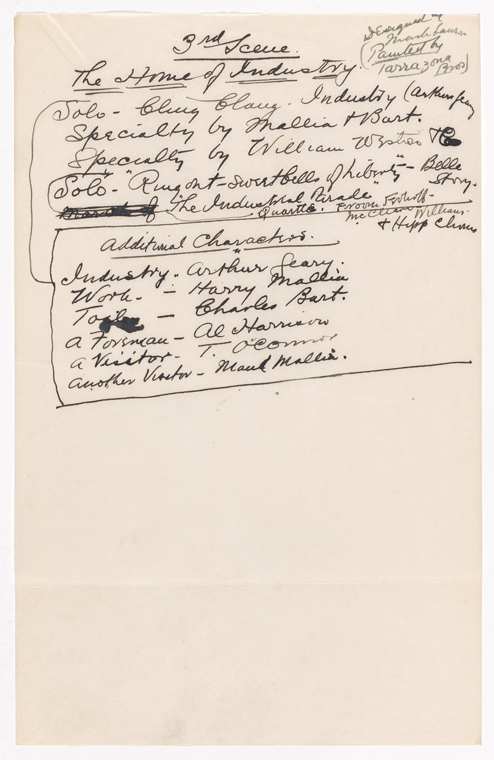 3rd Scene.
Designed by
Mark Lawson
(Painted by
Tarrazona
Bros)
The Home of Industry.
Solo - Cling Clang. Industry (Arthur Geary
Specialty by Mallia & Bart.
Specialty by William
Solo - "Ring Out - Sweet Bells of Liberty" - Belle
Story.
"The Industrial Parade"
Quartte.
McClain Williams
& Hipp Chorus
Additional Characters.
Industry. Arthur Geary.
Work. - Harry Mallia
- Charles Bart.
a Foreman - Al Harrison
a Visitor - T. O'Connor
another Visitor - Maud Mallia.